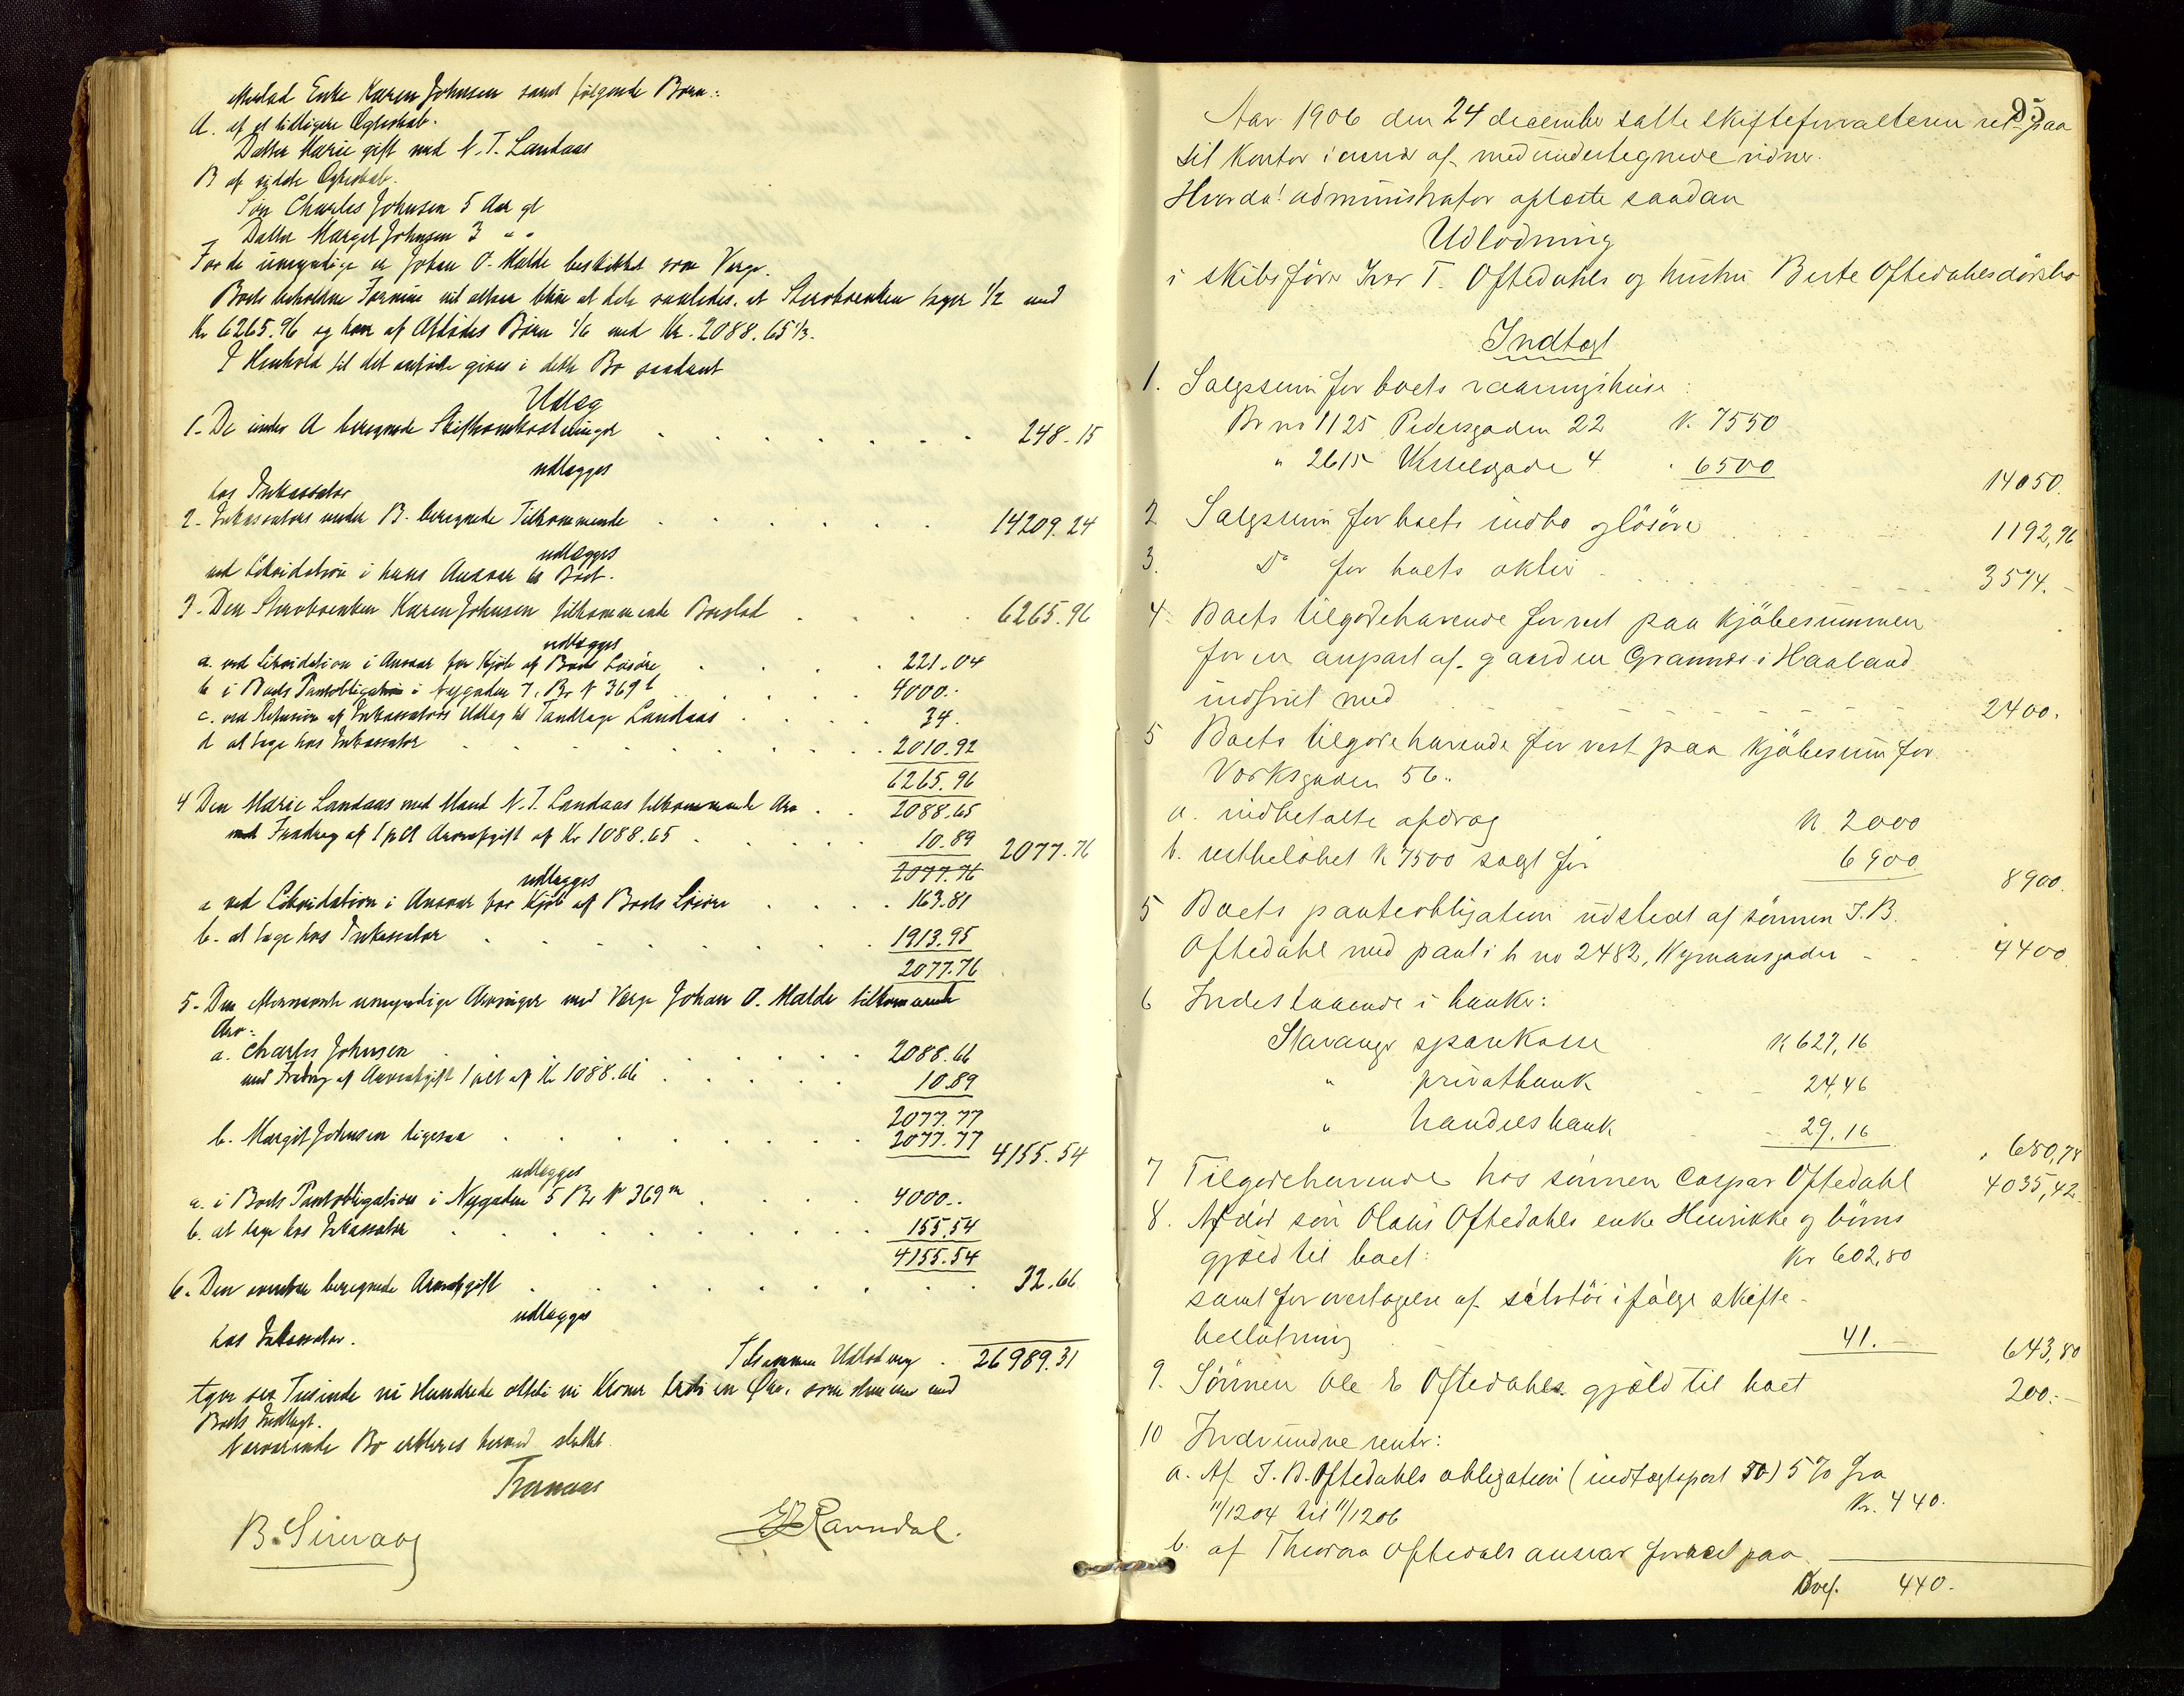 Enke Karen Johnsen samt følgende Børn:
A. af et tidligere Ægteskab.
Datter Marie gift med N. T. Landaas
B af sidste Ægteskab.
Søn Charles Johnsen 5 Aar gl
Datter Margit Johnsen 3 " "
For de umyndige er Johan O. Malde beskikket som Verge.
Boets beholdne Formue vil altsaa blive at dele saaledes, at Stervboenken tager 1/2 med
Kr 6265.96 og hver af Afdødes Børn 1/6 med Kr. 2088.65 1/3.
I Henhold til det anførte gives i dette Bo saadant
Udlæg
1. De under A beregnede Skifteomkostninger 248.15
udlægges
hos Inkassator
2. Inkassators under B. beregnede Tilkommende 14209.24
udlægges
ved Likvidation i hans Ansvar til Boet.
3. Den Stervboenken Karen Johnsen tilkommende Boeslod 6265.96
udlægges
a. ved Likvidation i Ansvar for Kjøb af Boets Løsøre 221.04
b i Boets Pantobligation i Nygaden 7, Br N 369 l 4000.-
c. ved Refusion af Inkassators Udlæg til Tandlæge Landaas 34.
d at tage hos Inkassator 2010.92
6265.96
4 Den Marie Landaas med Mand N. T. Landaas tilkommende Arv 2088.65
med Fradrag af 1 pCt Arveafgift af Kr 1088.65 10.89 2077.76
2077.76
udlægges
a ved Likvidation i Ansvar for Kjøb af Boets Løsøre 163.81
b. at tage hos Inkassator 1913.95
2077.76
5. Den umyndige Arvinger med Verge Johan O. Malde tilkommende
Arv:
a. Charles Johnsen 2088.66
med Fradrag af Arveafgift 1 pCt af Kr 1088.66 10.89
2077.77
b. Margit Johnsen ligesaa 2077.77
4155.54
udlægges
a. i Boets Pantobligation i Nygaden 5 Br N 369 m 4000.-
b. at tage hos Inkassator 155.54
4155.54
6. Den ovenfor beregnede Arveafgift 32.66
udlægges
hos Inkassator.
Tilsammen Udlodning 26989.31
tyve sex Tusinde ni Hundrede otteti ni Kroner treti en Øre, som stemmer med
Boets Indtægt.
Nærværende Bo erklæres herved sluttet.
Tranaas
B. Sirevaag
Ravndal.
95
Aar 1906 den 24 december satte skifteforvalteren ret paa
sit kontor i overvær af medundertegnede vidner.
Hvorda! administrator oplæste saadan
Udlodning
i skibsfører Iver T. Oftedahls og hustru Berte Oftedahls dødsbo
Indtægt
1. Salgssum for boets vaaningshuse:
Br no 1125 Pedersgaden 22 K. 7550
" 2615 Vesselsgade 4 " 6500
14050.
2 Salgssum for boets indbo og løsøre 1192,96
3. Do for boets aktier 3574.-
4 Boets tilgodehavende for rest paa kjøbesummen
for en anpart af gaarden Grannes i Haaland
indfriet med 2400.
5 Boets tilgodehavende for rest paa kjøbesum for
Verksgaden 56..
a. indbetalte afdrag K. 2000
b. restbeløbet K 7500 solgt for 6900.
8900.
5 Boets panteobligation udstedt af sønnen I. B.
Oftedahl med pant i h no 2482, Nymansgaden 4400.
6 Indestaaende i banker:
Stavanger sparekasse K 627,16
" privatbank 24,46
" handelsbank 29.16
" 680,78
7 Tilgodehavende hos sønnen Caspar Oftedahl 4035,42
8. Afdød søn Olaus Oftedahls enke Henrikke og børns
gjæld til boet: Kr 602,80
samt for overtagelse af sølvtøi i følge skifte-
beslutning 41.- 643,80
9. Sønnen Ole E Oftedahls gjæld til boet 200.-
10 Indvundne renter:
a. Af I. B. Oftedahls obligation (indtægtspost 5) 5% fra
11/12 04 til 11/12 06 Kr. 440.
b. af Thodora Oftedals ansvar for rest paa
Overf. 440.